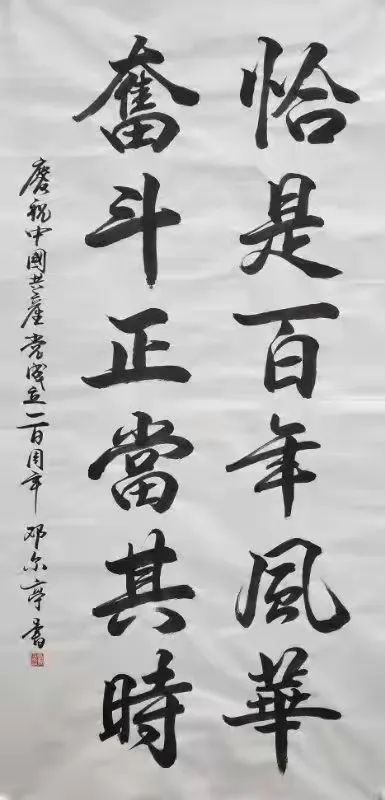 恰是百年風華
奮斗正當其時
慶祝中國共產党成立一百周年 邓尔亭書